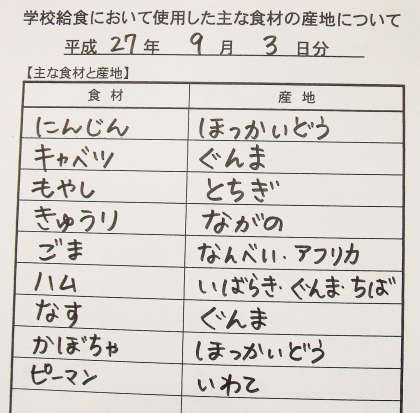 学校給食において使用した主な食材の産地について
平成 27 年 9 月 3 日分
【主な食材と産地】
食材 産地
にんじん ほっかいどう
キャベツ ぐんま
もやし とちぎ
きゅうり ながの
ごま なんべい・アフリカ
ハム いばらき・ぐんま・ちば
なす ぐんま
かぼちゃ ほっかいどう
ピーマン いわて